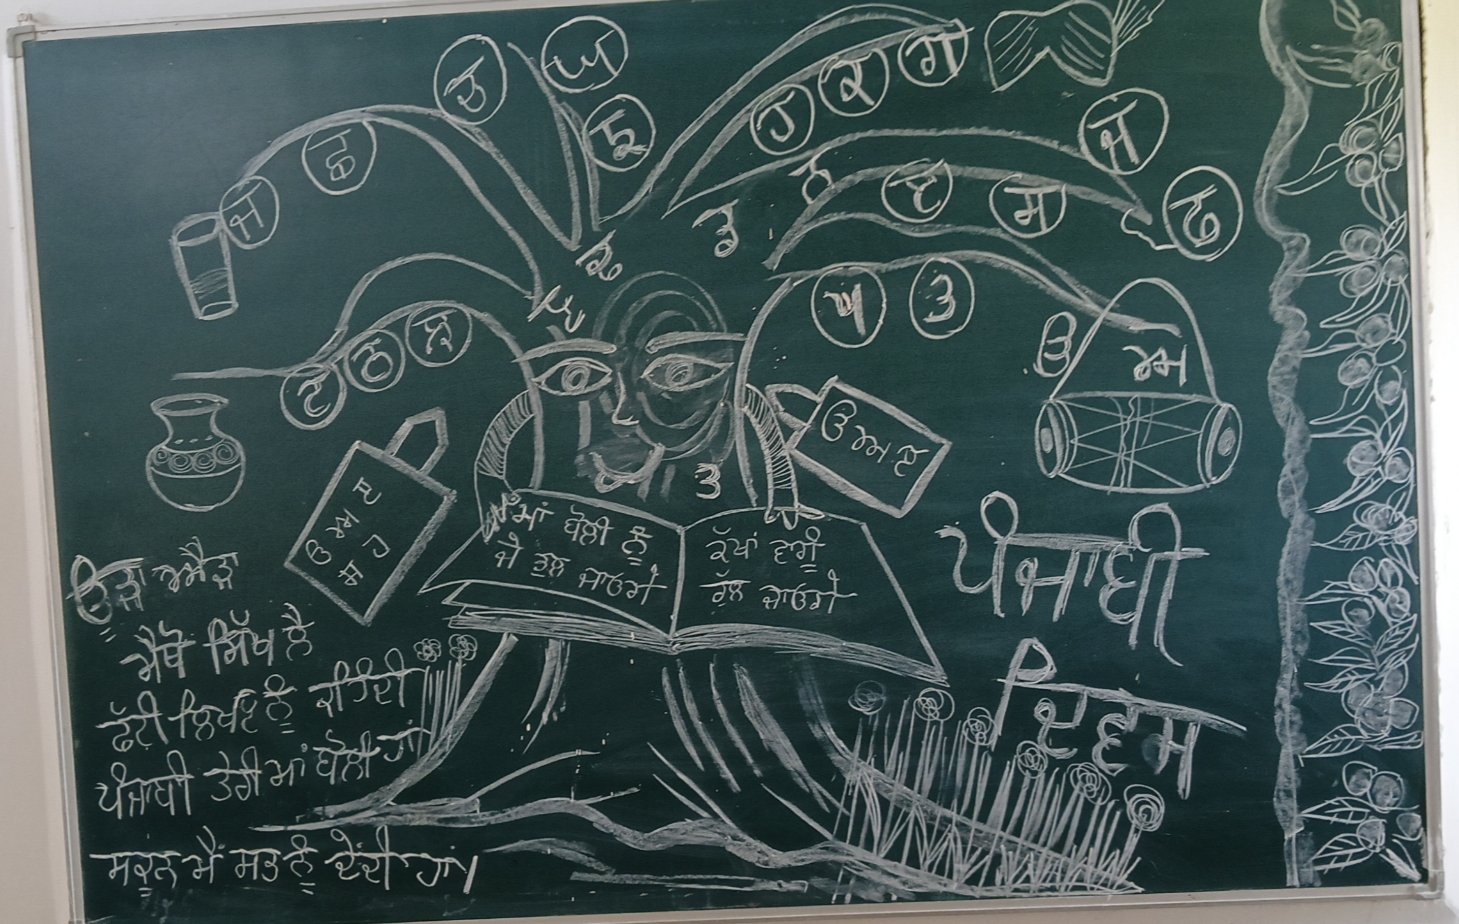 ਤ
ਘ
ਫ
ਜ
ਹ
ਕ
ਗ
ਜ
ਢ
ਨ
ਦ
ਸ
ਖ
ਤ
ੳ
ਅ
ੲ
ਠ
ੳ ਅ ੲ
ੳ ਅ ੲ
ਸ ਹ
ਮਾਂ ਬੋਲੀ ਨੂੰ
ਜੇ ਭੁਲ ਜਾਓਗੇ
ਕੱਖਾਂ ਵਾਂਗੂੰ
ਰੁੱਲ ਜਾਓਗੇ
ਪੰਜਾਬੀ
ਦਿਵਸ
ਊੜਾ ਐੜਾ
ਮੈਥੋਂ ਸਿੱਖ ਲੈ
ਫੱਟੀ ਲਿਖਣ ਨੂੰ
ਪੰਜਾਬੀ ਤੇਰੀ ਮਾਂ ਬੋਲੀ ਹਾਂ
ਸਕੂਨ ਮੈਂ ਸਭ ਨੂੰ ਦੇਂਦੀ ਹਾਂ।